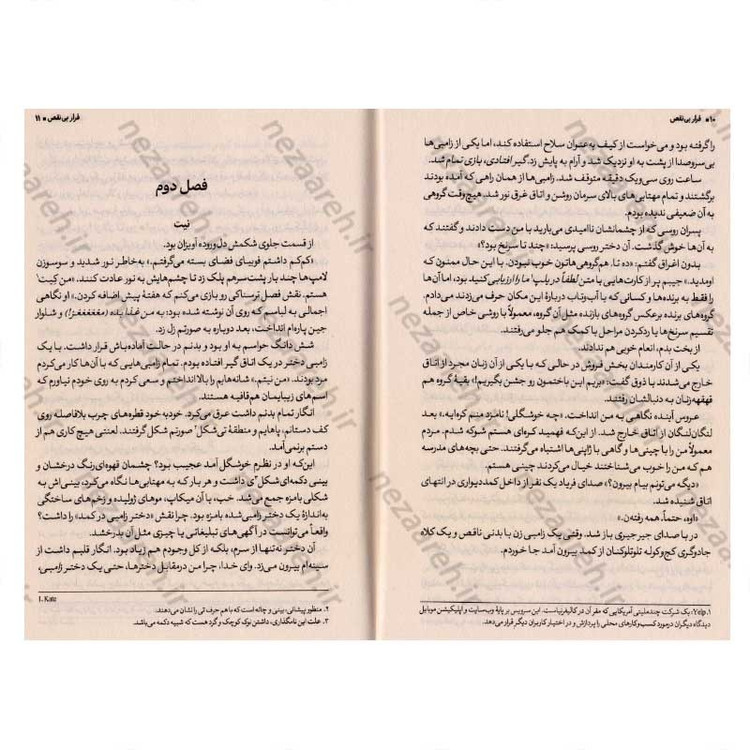 ۱۰ ▪ فرار بی‌نقص
را گرفته بود و می‌خواست از کیف به‌عنوان سلاح استفاده کند، اما یکی از زامبی‌ها
بی‌سروصدا از پشت به او نزدیک شد و آرام به پایش زد. گیر افتادی، بازی تمام شد.
ساعت روی سی‌ویک دقیقه متوقف شد. زامبی‌ها از همان راهی که آمده بودند
برگشتند و تمام مهتابی‌های بالای سرمان روشن و اتاق غرق نور شد. هیچ‌وقت گروهی
به آن ضعیفی ندیده بودم.
پسران روسی که از چشمانشان ناامیدی می‌بارید با من دست دادند و گفتند که
به آن‌ها خوش گذشت. آن دختر روسی پرسید: «چند تا سرنخ بود؟»
بدون اغراق گفتم: «ده تا. هم‌گروهی‌هاتون خوب نبودن. با این حال ممنون که
اومدید.» جیبم پر از کارت‌هایی با متن لطفاً در یلپ¹ ما را ارزیابی کنید بود، اما آن‌ها
را فقط به برنده‌ها و کسانی که با آب‌وتاب دربارهٔ این مکان حرف می‌زدند می‌دادم.
گروه‌های برنده برعکس گروه‌های بازنده مثل آن گروه، معمولاً با روشی خاص از جمله
تقسیم سرنخ‌ها یا ردکردن مراحل با کمک هم جلو می‌رفتند.
از بخت بدم، انعام خوبی هم ندادند.
یکی از آن کارمندان بخش فروش در حالی که با یکی از آن زنان مجرد از اتاق
خارج می‌شدند با ذوق گفت: «بریم این باختمون رو جشن بگیریم!» بقیهٔ گروه هم
قهقهه‌زنان به دنبالشان رفتند.
عروس آینده نگاهی به من انداخت. «چه خوشگلی! نامزد منم کره‌ایه.» بعد
لنگان‌لنگان از اتاق خارج شد. از این‌که فهمید کره‌ای هستم شوکه شدم. مردم
معمولاً من را با چینی‌ها و گاهی با ژاپنی‌ها اشتباه می‌گرفتند. حتی بچه‌های مدرسه
هم که من را خوب می‌شناختند خیال می‌کردند چینی هستم.
«دیگه می‌تونم بیام بیرون؟» صدای فریاد یک نفر از داخل کمددیواری در انتهای
اتاق شنیده شد.
«اوه، حتماً. همه رفته‌ن.»
در با صدای جیرجیری باز شد. وقتی یک زامبی زن با بدنی ناقص و یک کلاه
جادوگری کج‌وکوله تلوتلوکنان از کمد بیرون آمد جا خوردم.
۱. Yelp: یک شرکت چندملیتی آمریکایی که مقر آن در کالیفرنیاست. این سرویس بر پایهٔ وب‌سایت و اپلیکیشن موبایل
دیدگاه دیگران درمورد کسب‌وکارهای محلی را پردازش و در اختیار کاربران دیگر قرار می‌دهد.
فرار بی‌نقص ▪ ۱۱
فصل دوم
نیت
از قسمت جلوی شکمش دل‌وروده آویزان بود.
«کم‌کم داشتم فوبیای فضای بسته می‌گرفتم.» به‌خاطر نور شدید و سوسوزن
لامپ‌ها چند بار پشت‌سرهم پلک زد تا چشم‌هایش به نور عادت کنند. «من کیت¹
هستم. نقش فصل ترسناکی رو بازی می‌کنم که هفتهٔ پیش اضافه کردن.» او نگاهی
اجمالی به لباسم که روی آن نوشته شده بود: به من غذا بده (مغغغغغز!) و شلوار
جین پاره‌ام انداخت، بعد دوباره به صورتم زل زد.
شش دانگ حواسم به او و بدنم در حالت آماده‌باش قرار داشت. با یک
زامبی دختر در یک اتاق گیر افتاده بودم. تمام زامبی‌هایی که با آن‌ها کار می‌کردم
مرد بودند. «من نیتم.» شانه‌هایم را بالا انداختم و سعی کردم به روی خودم نیاورم که
اسم‌های زیبایمان هم‌قافیه هستند.
انگار تمام بدنم داشت عرق می‌کرد. خودبه خود قطره‌های چرب بلافاصله روی
کف دستانم، پاهایم و منطقهٔ تی‌شکل² صورتم شکل گرفتند. لعنتی هیچ کاری هم از
دستم برنمی‌آمد.
این‌که او در نظرم خوشگل آمد عجیب بود؟ چشمان قهوه‌ای‌رنگ درخشان و
بینی دکمه‌ای‌شکل³ی داشت و هر بار که به مهتابی‌ها نگاه می‌کرد، بینی‌اش به
شکلی بامزه جمع می‌شد. خب، با آن میکاپ، موهای ژولیده و زخم‌های ساختگی
به‌اندازهٔ یک دختر زامبی‌شده بامزه بود. چرا نقش «دختر زامبی در کمد» را داشت؟
واقعاً می‌توانست در آگهی‌های تبلیغاتی یا چیزی مثل آن بدرخشد.
آن دختر نه‌تنها از سرم، بلکه از کل وجودم هم زیاد بود. انگار قلبم داشت از
سینه‌ام بیرون می‌زد. وای خدا، چرا من درمقابل دخترها، حتی یک دختر زامبی،
1. Kate
۲. منظور پیشانی، بینی و چانه است که با هم حرف تی را نشان می‌دهند.
۳. علت این نامگذاری، داشتن نوک کوچک و گرد هست که شبیه دکمه می‌باشد.
nezaareh.ir
nezaareh.ir
nezaareh.ir
nezaareh.ir
nezaareh.ir
nezaareh.ir